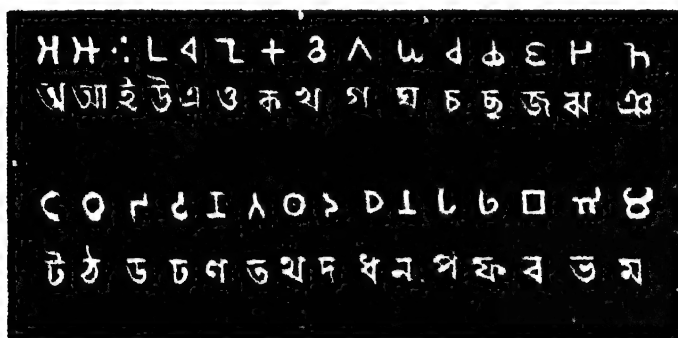 𑀅 𑀆 𑀇 𑀉 𑀏 𑀑 𑀓 𑀔 𑀕 𑀖 𑀘 𑀙 𑀚 𑀛 𑀜
অ আ ই উ এ ও ক খ গ ঘ চ ছ জ ঝ ঞ
𑀝 𑀞 𑀟 𑀠 𑀡 𑀢 𑀣 𑀤 𑀥 𑀦 𑀧 𑀨 𑀩 𑀪 𑀫
ট ঠ ড ঢ ণ ত থ দ ধ ন প ফ ব ভ ম